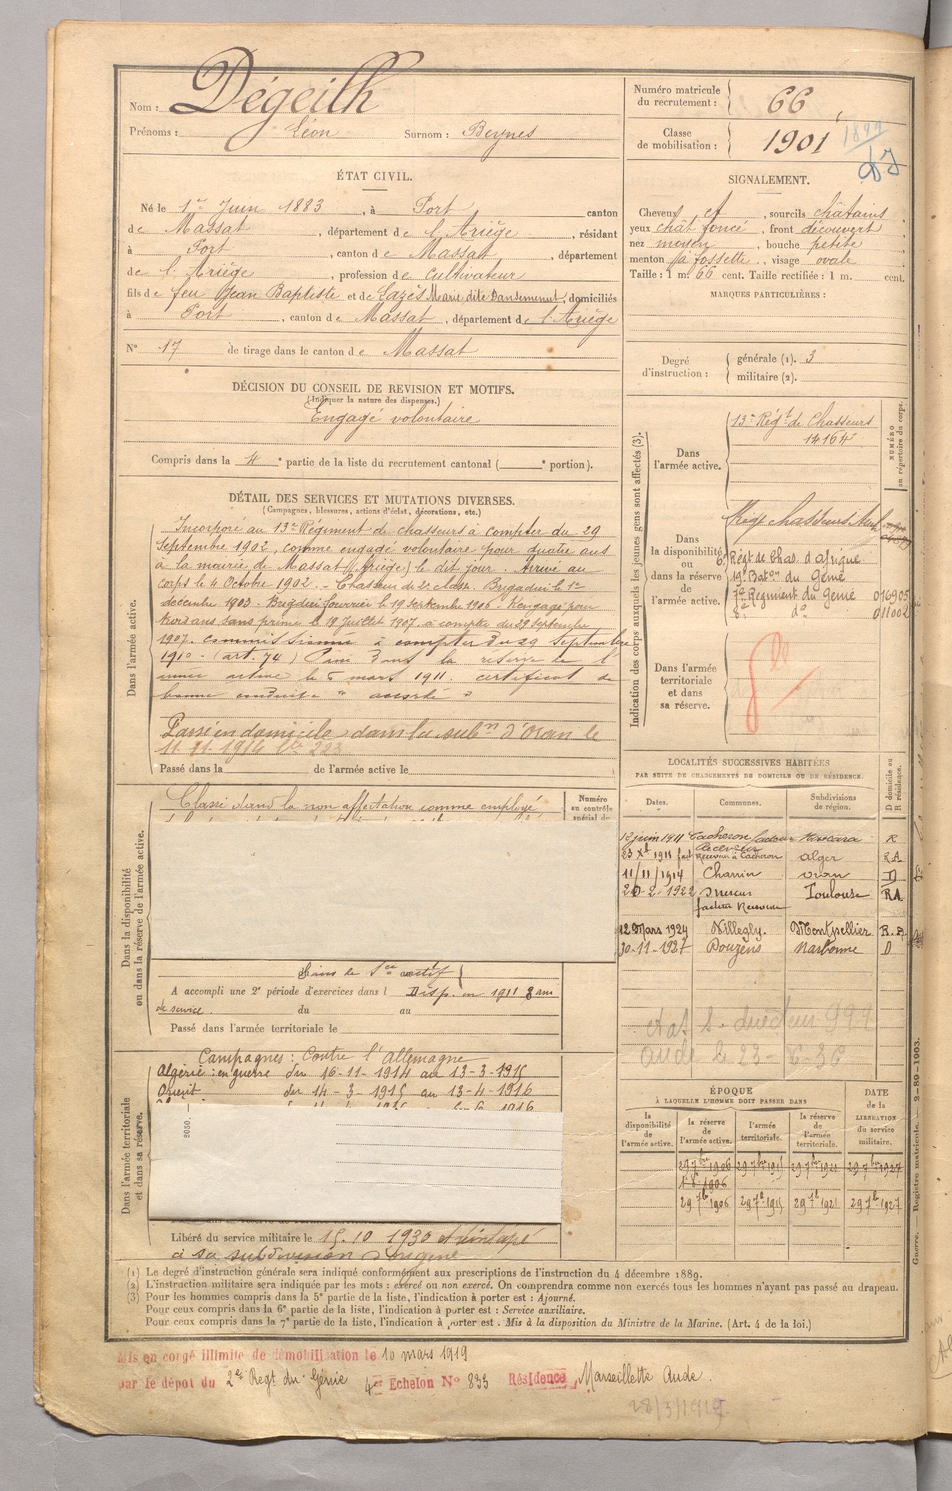 Nom : Dégeilh
Prénoms : Léon Surnom : Beynes
ÉTAT CIVIL.
Né le 1er Juin 1883, à Port canton
de Massat, département de l'Ariège, résidant
à Port, canton de Massat, département
de l'Ariège, profession de Cultivateur
fils de feu Jean Baptiste et de Cazès Marie dite Dansement, domiciliés
à Port, canton de Massat, département de l'Ariège
N° 17 de tirage dans le canton de Massat
DÉCISION DU CONSEIL DE REVISION ET MOTIFS.
(Indiquer la nature des dispenses.)
Engagé volontaire
Compris dans la 4e partie de la liste du recrutement cantonal ( e portion).
DÉTAIL DES SERVICES ET MUTATIONS DIVERSES.
(Campagnes, blessures, actions d'éclat, décorations, etc.)
Dans l'armée active.
Incorporé au 13e Régiment de chasseurs à compter du 29
Septembre 1902, comme engagé volontaire pour quatre ans
à la mairie de Massat (Ariège) le dit jour. Arrivé au
corps le 4 Octobre 1902. - Chasseur de 2e classe. Brigadier le 1er
décembre 1903. Brigadier fourrier le 19 septembre 1906. Rengagé pour
trois ans sans prime le 18 Juillet 1907 à compter du 29 septembre
1907. commissionné à compter du 29 Septembre
1910 (art. 74) Passé dans la réserve de l'
armée active le 5 mars 1911. certificat de
bonne conduite "accordé"
Passé en domicile dans la subon d'Oran le
11. 11. 1914
Passé dans la de l'armée active le
Dans la disponibilité ou dans la réserve de l'armée active.
Classé dans la non affectation comme employé
Numéro au contrôle spécial du
A accompli une 2e période d'exercices dans l Disp. en 1911 8 ans
de service. du au
Passé dans l'armée territoriale le
Dans l'armée territoriale et dans sa réserve.
Campagnes : Contre l'Allemagne
Algérie : en guerre du 16-11-1914 au 13-3-1915
Orient du 14-3-1915 au 13-4-1916
Libéré du service militaire le 15.10 1930
à sa subdivision d'origine
Numéro matricule du recrutement : 66
Classe de mobilisation : 1901
1899
SIGNALEMENT.
Cheveux et, sourcils châtains,
yeux chât foncé, front découvert,
nez moyen, bouche petite
menton à fossette, visage ovale
Taille : 1 m. 66 cent. Taille rectifiée : 1 m. cent.
MARQUES PARTICULIÈRES :
Degré d'instruction : générale (1). 3
militaire (2).
Indication des corps auxquels les jeunes gens sont affectés (3).
NUMÉRO au répertoire du corps.
Dans l'armée active.
13e Régt de Chasseurs
14164
Dans la disponibilité ou dans la réserve de l'armée active.
6e Régt de Chas. d'Afrique
19e Baton du Génie
7e Régiment du Génie 016905
8e do 011002
Dans l'armée territoriale et dans sa réserve.
LOCALITÉS SUCCESSIVES HABITÉES
PAR SUITE DE CHANGEMENTS DE DOMICILE OU DE RÉSIDENCE.
Dates. Communes. Subdivisions de région. D domicile ou R résidence.
12 juin 1911 Cacherou facteur Mascara R
23 Xbre 1911 fact Receveur à Cacherou Alger RA
11/11/1914 Charrin Oran D
20-2-1922 Mercus Toulouse RA
facteur Receveur
12 Mars 1924 Villegly. Montpellier R. A
30-11-1927 Douzens Narbonne D
Aude le 23-6-36
ÉPOQUE
À LAQUELLE L'HOMME DOIT PASSER DANS
la disponibilité de l'armée active. la réserve de l'armée active. l'armée territoriale. la réserve de l'armée territoriale.
DATE de la LIBÉRATION du service militaire.
29 7bre 1906 29 7bre 1915 29 7bre 1921 29 7bre 1927
29 7bre 1906 29 7bre 1915 29 7bre 1921 29 7bre 1927
(1) Le degré d'instruction générale sera indiqué conformément aux prescriptions de l'instruction du 4 décembre 1889.
(2) L'instruction militaire sera indiquée par les mots : exercé ou non exercé. On comprendra comme non exercés tous les hommes n'ayant pas passé au drapeau.
(3) Pour les hommes compris dans la 5e partie de la liste, l'indication à porter est : Ajourné.
Pour ceux compris dans la 6e partie de la liste, l'indication à porter est : Service auxiliaire.
Pour ceux compris dans la 7e partie de la liste, l'indication à porter est : Mis à la disposition du Ministre de la Marine. (Art. 4 de la loi.)
Guerre. — Registre matricule. — 2-80-1903.
Mis en congé illimité de démobilisation le 10 mars 1919
par le dépôt du 2e Regt du Génie 4e Echelon N° 833 Résidence Marseillette Aude.
28/3/1919